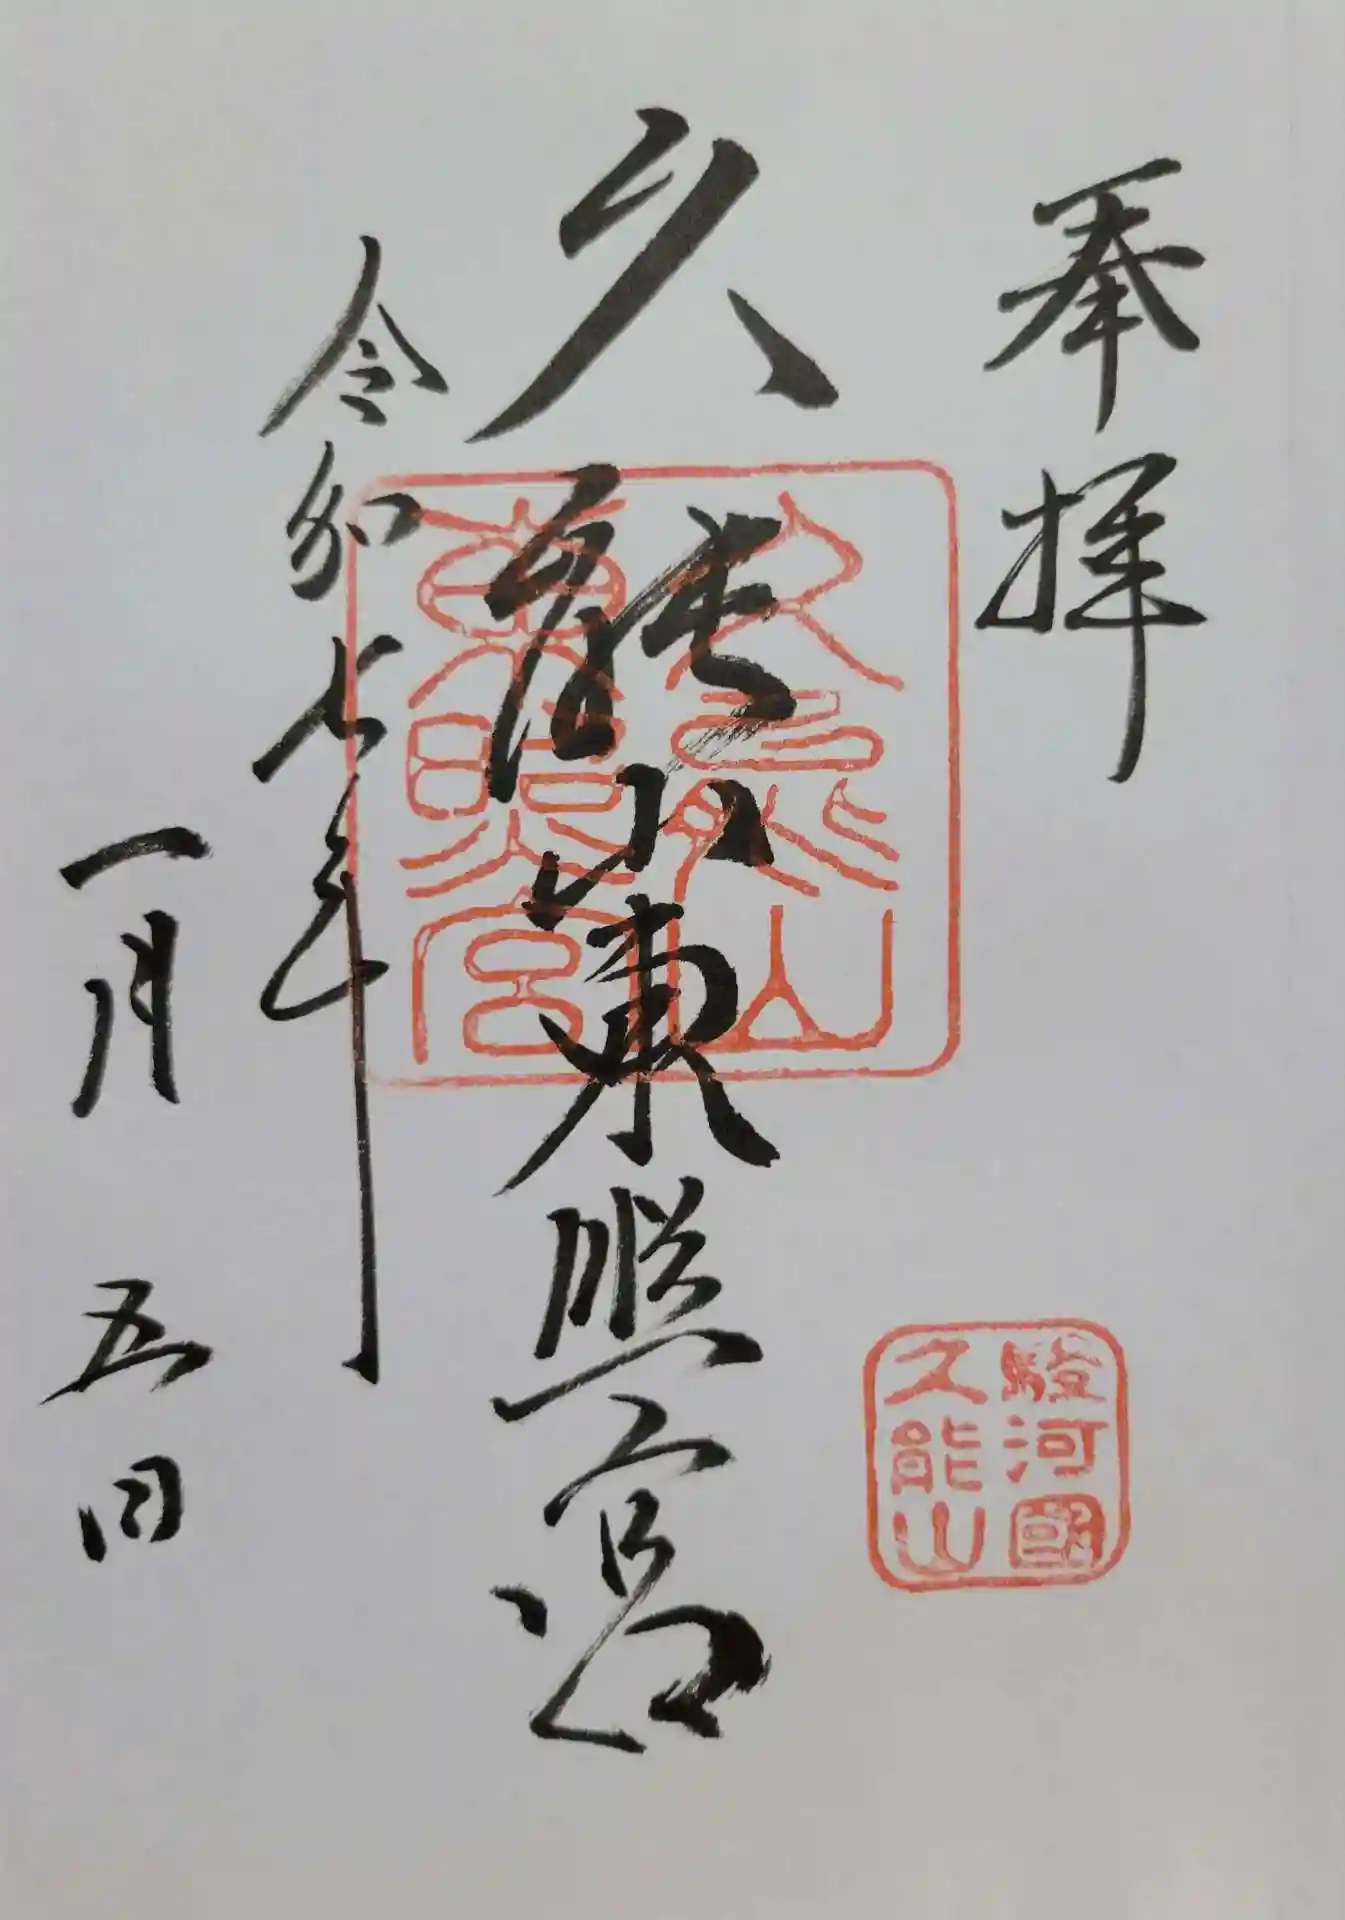 奉拝
駿河國
久能山
久能山
東照宮
久能山東照宮
令和七年
一月五日